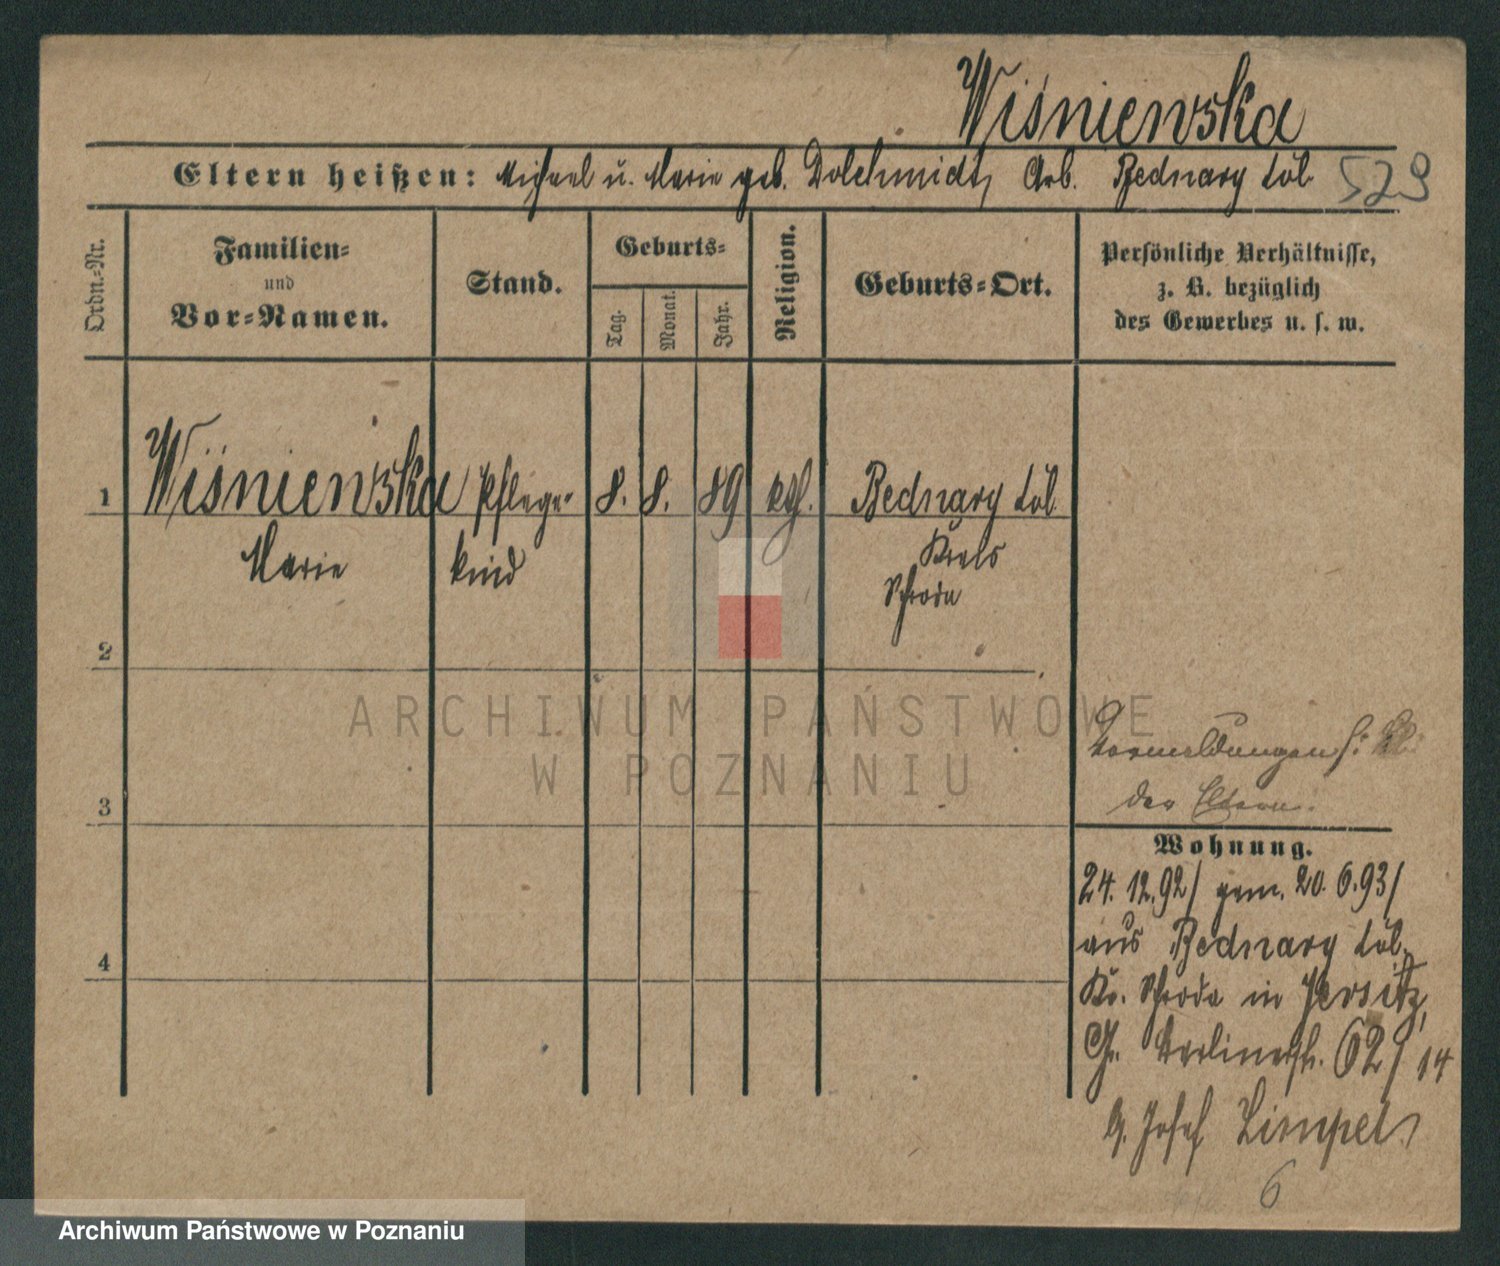 Wiśniewska
Eltern heißen: Michael u. Marie geb. Dolchmidt, Arb. Bednary Lol 529
Ordn.-Nr.
Familien-
und
Vor-Namen.
Stand.
Geburts-
Tag.
Monat.
Jahr.
Religion.
Geburts-Ort.
Persönliche Verhältnisse,
z. B. bezüglich
des Gewerbes u. s. w.
1 Wiśniewska Pflege- 8. 8. 89 kath. Bednary
Marie kind Kreis
Schroda
2
ARCHIWUM PAŃSTWOWE
W POZNANIU
3
4
Vormeldungen s: bei
den Eltern.
Wohnung.
24. 12. 92/ gem. 20. 6. 93/
aus Bednary
Kr. Schroda in Jersitz,
Gr. Berlinerstr. 62/ 14
b. Josef Limpel
6
Archiwum Państwowe w Poznaniu